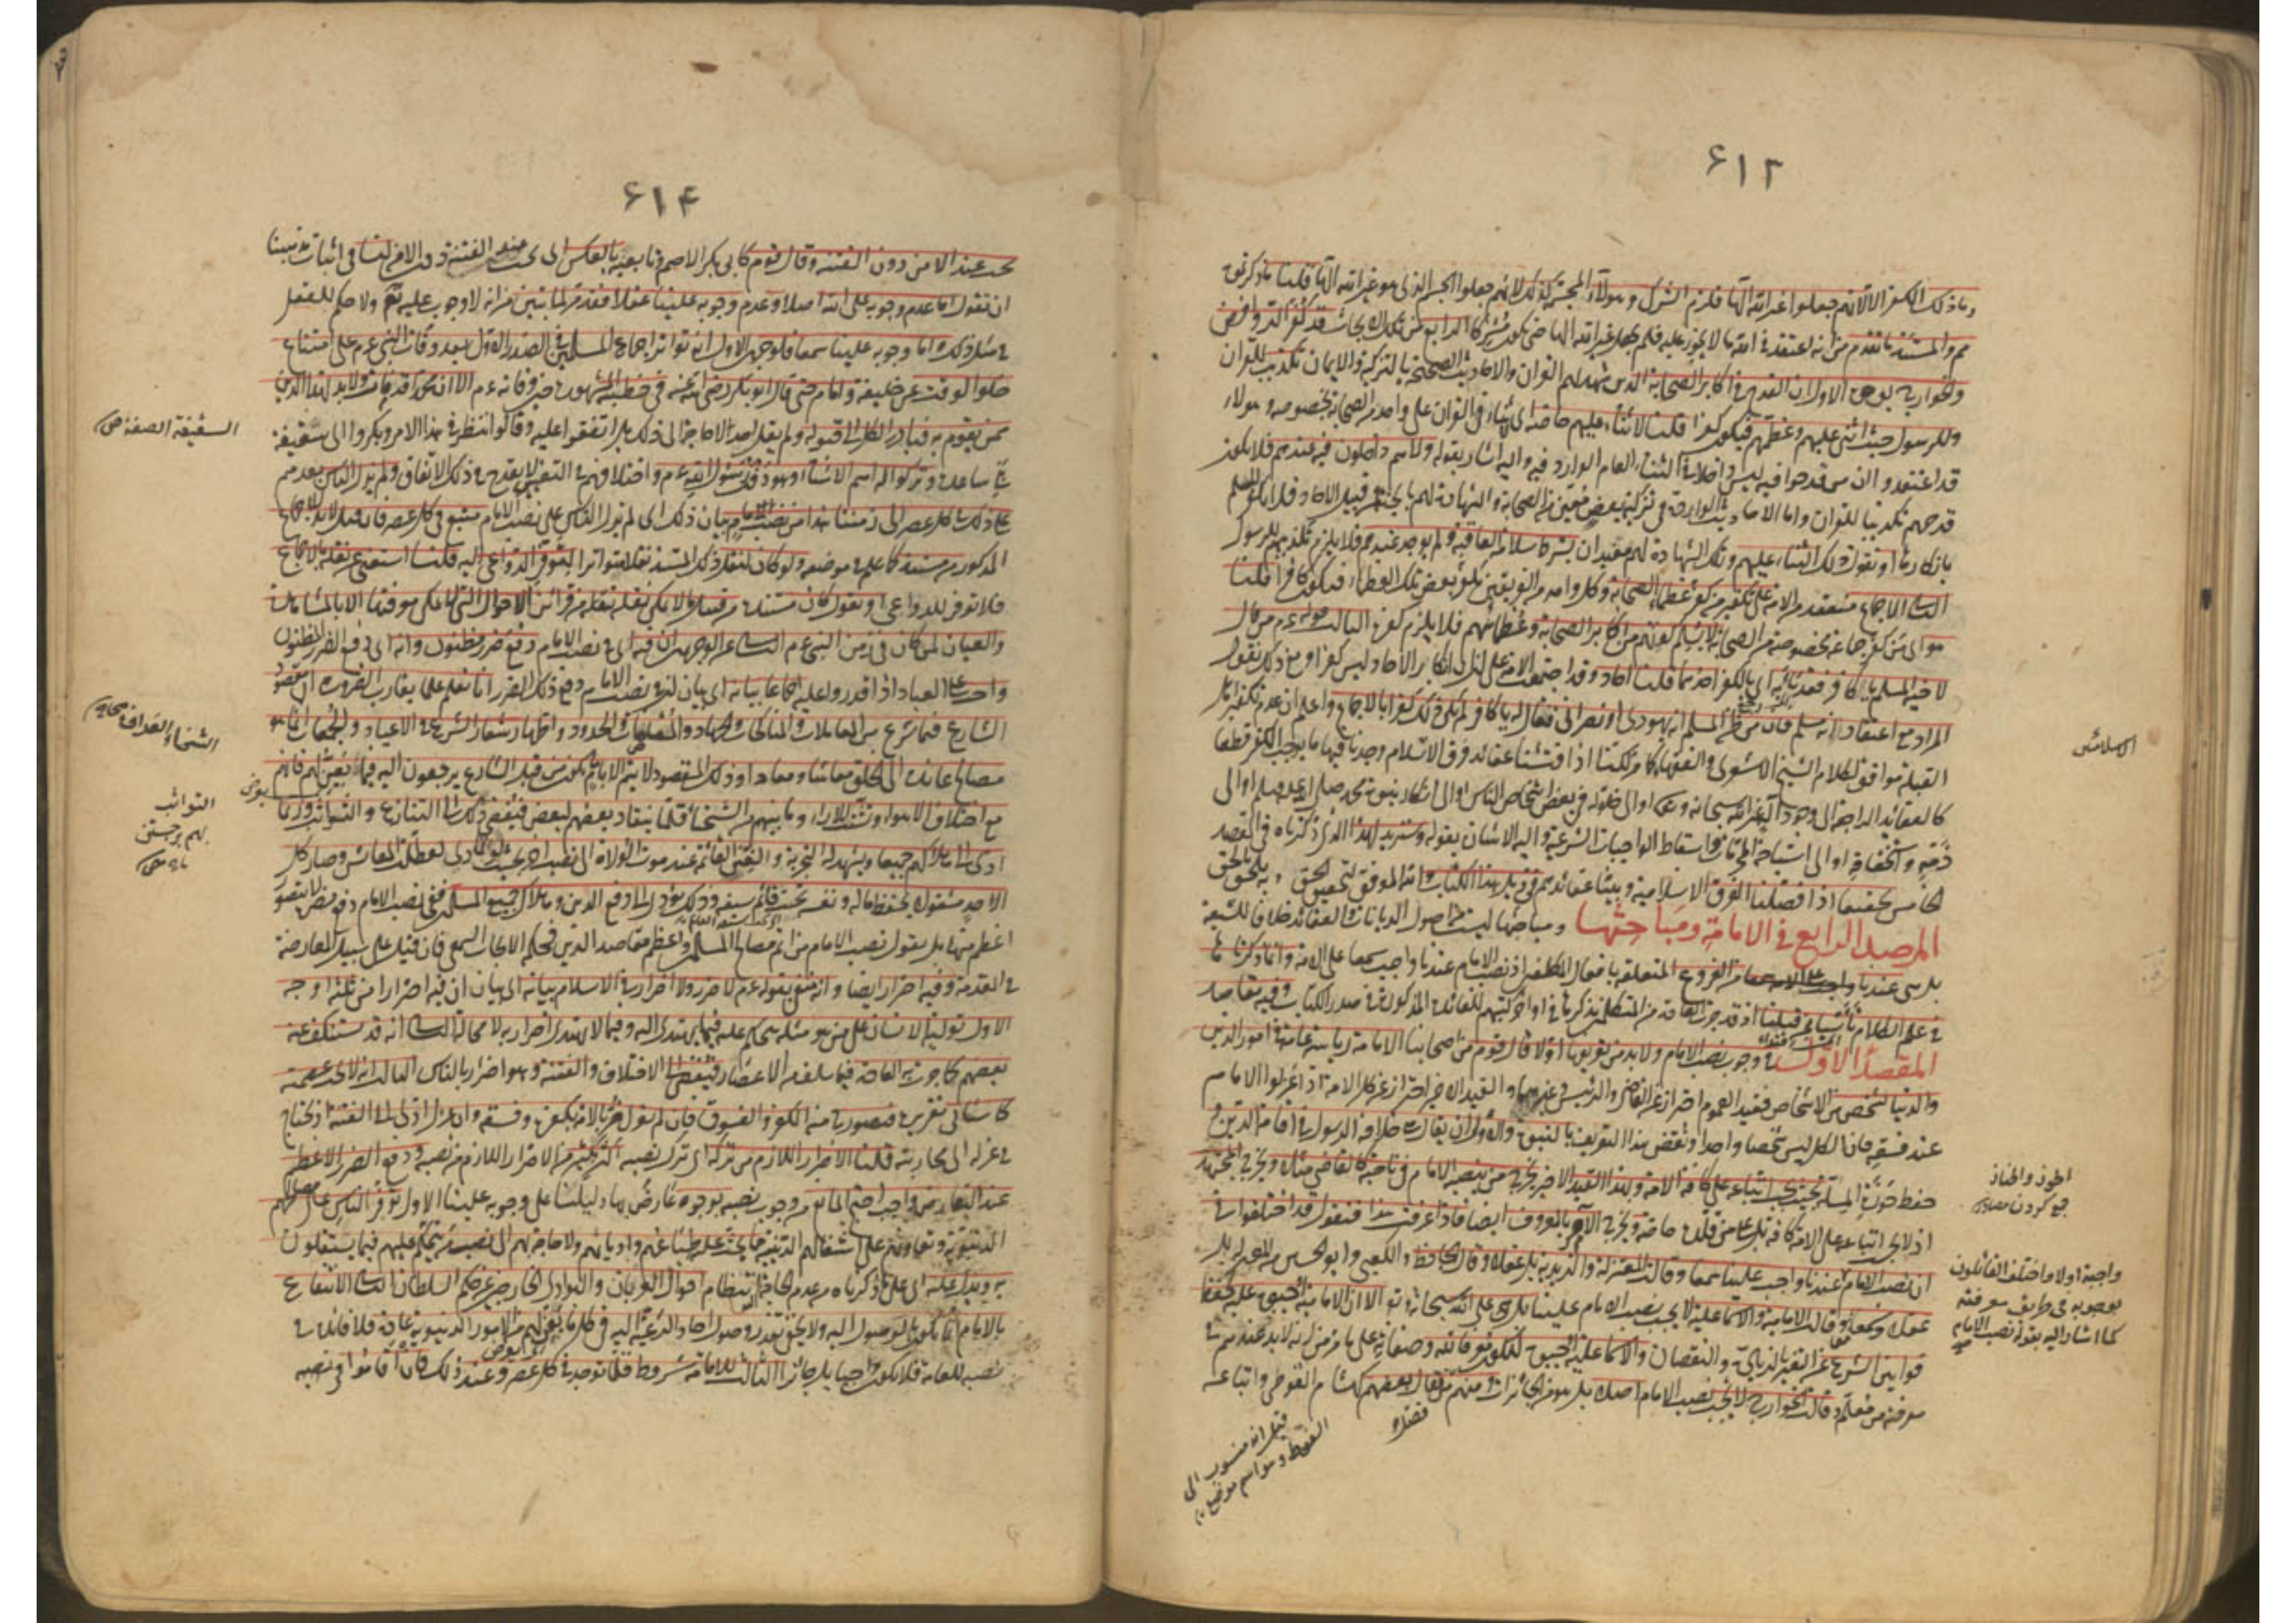 ۶۱۳
وما ذلك الكفر الا لانهم جعلوا غير الله الها فلزم الشرك وهولاء المجسمة كذلك لانهم جعلوا الجسم الذى هو غير الله الها قلنا ما ذكرتم
مم والمستند ما تقدم من انه اعتقد فى الله ما لا يجوز عليه فلم يجعل غير الله الها حتى يكون مشركا الرابع من تلك الابحاث قد كفر الروافض
والخوارج بوجوه الاول ان القدح فى اكابر الصحابة الذين شهد لهم القران والاحاديث الصحيحة بالتزكية والايمان تكذيب للقران
وللرسول حيث اثنى عليهم وعظمهم فيكون كفرا قلنا لا ثناء عليهم خاصة اى لا ثناء فى القران على واحد من الصحابة بخصوصه وهولاء
قد اعتقدوا ان من قدحوا فيه ليس داخلا فى الثناء العام الوارد فيه واليه اشار بقوله ولا هم داخلون فيه عندهم فلا يكون
قدحهم تكذيبا للقران واما الاحاديث الواردة فى تزكية بعض معين من الصحابة والشهادة لهم بالجنة فمن قبيل الاحاد فلا يكفر المسلم
بانكارها او نقول ذلك الثناء عليهم وتلك الشهادة لهم مقيدان بشرط سلامة العاقبة ولم يوجد عندهم فلا يلزم تكذيبهم للرسول
الثانى الاجماع منعقد من الامة على تكفير من كفر عظماء الصحابة وكل واحد من الفريقين يكفر بعض تلك العظماء فيكون كافرا قلنا
هو اى من كفر جماعة مخصوصة من الصحابة لا يسلم كونهم من اكابر الصحابة وعظمائهم فلا يلزم كفره الثالث قوله عم من قال
لاخيه المسلم يا كافر فقد باء به اى بالكفر احدهما قلنا احاد وقد اجتمعت الامة على ان انكار الاحاد ليس كفرا ومع ذلك نقول
المراد مع اعتقاد انه مسلم فان من ظن المسلم انه يهودى او نصرانى فقال له يا كافر لم يكن ذلك كفرا بالاجماع واعلم ان عدم تكفير اهل
القبلة موافق لكلام الشيخ الاشعرى والفقهاء كما مر لكنا اذا فتشنا عقائد فرق الاسلاميين وجدنا فيها ما يوجب الكفر قطعا
كالعقائد الراجعة الى وجود اله غير الله سبحانه وتعالى او الى حلوله فى بعض اشخاص الناس او الى انكار نبوة محمد صلى الله عليه وسلم او الى
ذمه واستخفافه او الى استباحة المحرمات واسقاط الواجبات الشرعية واليه الاشارة بقوله وسنزيد لهذا الذى ذكرناه فى المقصد
الخامس تحقيقا اذا فصلنا الفرق الاسلامية وبينا عقائدهم فى ذيل هذا الكتاب والله الموفق لتحقيق الحق
المرصد الرابع فى الامامة ومباحثها وساحتها ليست من اصول الديانات والعقائد خلافا للشيعة
بل هى عندنا من الفروع المتعلقة بافعال المكلفين اذ نصب الامام عندنا واجب سمعا على الامة وانما ذكرناها
فى علم الكلام تأسيا بمن قبلنا اذ قد جرت العادة من المتكلمين بذكرها فى اواخر كتبهم للفائدة المذكورة فى صدر الكتاب وفيه مقاصد
المقصد الاول فى وجوب نصب الامام ولا بد من تعريفها اولا قال قوم من اصحابنا الامامة رياسة عامة فى امور الدين
والدنيا لشخص من الاشخاص فقيد العموم احتراز عن القاضى والرئيس وغيرهما والقيد الاخير احتراز عن كل الامة اذا عزلوا الامام
عند فسقه فان الكل ليس شخصا واحدا ونقض هذا التعريف بالنبوة والاولى ان يقال هى خلافة الرسول فى اقامة الدين و
حفظ حوزة الملة بحيث يجب اتباعه على كافة الامة وبهذا القيد الاخير يخرج من ينصبه الامام فى ناحية كالقاضى مثلا ويخرج المجتهد
اذ لا يجب اتباعه على الامة كافة بل على من قلده خاصة ويخرج الآمر بالمعروف ايضا فاذا عرفت هذا فنقول قد اختلفوا فى
ان نصب الامام عندنا واجب علينا سمعا وقالت المعتزلة والزيدية بل عقلا وقال الجاحظ والكعبى وابو الحسين من المعتزلة بل
عقلا وسمعا وقالت الامامية والاسماعيلية لا يجب نصب الامام علينا بل على الله سبحانه وتع الا ان الامامية اوجبوه عليه لحفظ
قوانين الشرع عن التغيير بالزيادة والنقصان والاسماعيلية اوجبوه ليكون معرفا لله وصفاته على ما مر من انه لا بد عندهم فى
معرفته من معلم وقالت الخوارج لا يجب نصب الامام اصلا بل هو من الجائزات ومنهم من فصل فقال بعضهم كهشام الفوطى واتباعه
الاسلاميين
الحوز والحيازة
جمع كردن مصادر
واجبة اولا واختلف القائلون
بوجوبه فى طريق معرفته
كما اشار اليه بقوله نصب الامام
قيل انه منسوب الى
الفوط وهو اسم موضع
۶۱۴
يجب عند الامن دون الفتنة وقال قوم كابى بكر الاصم وتابعيه بالعكس اى يجب عند الفتنة دون الامن لنا فى اثبات مذهبنا
ان نقول اما عدم وجوبه على الله اصلا وعدم وجوبه علينا عقلا فقد مر لما تبين من انه لا وجوب عليه تع ولا حكم للعقل
فى مثل ذلك واما وجوبه علينا سمعا فلوجهين الاول انه تواتر اجماع المسلمين فى الصدر الاول بعد وفات النبى عم على امتناع
خلو الوقت عن خليفة وامام حتى قال ابو بكر رضى الله عنه فى خطبته المشهورة حين وفاته عم الا ان محمدا قد مات ولا بد لهذا الدين
ممن يقوم به فبادر الكل الى قبوله ولم يقل احد لا حاجة الى ذلك بل اتفقوا عليه وقالوا ننظر فى هذا الامر وبكروا الى سقيفة
بنى ساعدة وتركوا له اهم الاشياء وهو دفن رسول الله عم واختلافهم فى التعيين لا يقدح فى ذلك الاتفاق ولم يزل الناس بعدهم
على ذلك فى كل عصر الى زمننا هذا من نصب الامام بيان ذلك اى لم يزل الناس على نصب الامام متبع فى كل عصر فان قيل لا بد للاجماع
المذكور من مستند كما علم فى موضعه ولو كان لنقل ذلك المستند نقلا متواترا لتوفر الدواعى اليه قلنا استغنى عن نقله بالاجماع
فلا توفر للدواعى او نقول كان مستنده من قبيل ما لا يمكن نقله من قرائن الاحوال التى لا يمكن معرفتها الا بالمشاهدة
والعيان لمن كان فى زمن النبى عم الثانى من الوجهين ان فيه اى فى نصب الامام دفع ضرر مظنون وانه اى دفع الضرر المظنون
واجب على العباد اذا قدروا عليه اجماعا بيانه اى بيان ان فى نصب الامام دفع ذلك الضرر انا نعلم علما يقارب الضرورة ان مقصود
الشارع فيما شرع من المعاملات والمناكحات والجهاد والحدود والمقاصات واظهار شعار الشرع فى الاعياد والجمعات انما هو
مصالح عائدة الى الخلق معاشا ومعادا وذلك المقصود لا يتم الا بامام يكون من قبل الشارع يرجعون اليه فيما يعن لهم فانهم
مع اختلاف الاهواء وتشتت الاراء وما بينهم من الشحناء قلما ينقاد بعضهم لبعض فيفضى ذلك الى التنازع والتواثب وربما
ادى الى هلاكهم جميعا ويشهد له التجربة والفتن القائمة عند موت الولاة الى نصب اخر بحيث لو تمادى لعطلت المعايش وصار كل
احد مشغولا بحفظ ماله ونفسه تحت قائم سيفه وذلك يؤدى الى رفع الدين وهلاك جميع المسلمين ففى نصب الامام دفع مضرة لا يتصور
اعظم منها بل نقول نصب الامام من اتم مصالح المسلمين واعظم مقاصد الدين فحكمه الايجاب السمعى فان قيل على سبيل المعارضة
فى المقدمة وفيه اضرار ايضا وانه منفى بقوله عم لا ضرر ولا ضرار فى الاسلام بيانه اى بيان ان فيه اضرارا من ثلثة اوجه
الاول تولية الانسان على من هو مثله ليحكم عليه فيما يهتدى اليه وفيما لا يهتدى اضرار به لا محالة الثانى انه قد يستنكف عنه
بعضهم كما جرت به العادة فيما سلف من الاعصار فيفضى الى الاختلاف والفتنة وهو اضرار بالناس الثالث انه لا يجب عصمته
كما سيأتى تقريره فيتصور منه الكفر والفسوق فان لم يعزل اضر بالامة بكفره وفسقه وان عزل ادى الى الفتنة اذ يحتاج
فى عزله الى محاربته قلنا الاضرار اللازم من تركه اى ترك نصبه اكثر بكثير من الاضرار اللازم من نصبه ودفع الضرر الاعظم
عند التعارض واجب احتج المانع من وجوب نصبه بوجوه عارض بها دليلنا على وجوبه علينا الاول توفر الناس على مصالحهم
الدنيوية وتعاونهم على اشغالهم الدينية مما يحث عليه طباعهم واديانهم ولا حاجة بهم الى نصب من يتحكم عليهم فيما يستقلون
به ويدل عليه اى على ما ذكرناه من عدم الحاجة اليه انتظام احوال العربان والبوادى الخارجين عن حكم السلطان الثانى الانتفاع
بالامام انما يكون بالوصول اليه ولا يخفى تعذر وصول احاد الرعية اليه فى كل ما يعن لهم من الامور الدنيوية عادة فلا فائدة فى
نصبه للعامة فلا يكون واجبا بل جائزا الثالث للامامة شروط قلما توجد فى كل عصر وعند ذلك فان اقاموا
السقيفة الصفة ص
الشحناء العداوة صحاح
التواثب
بهم برجستن